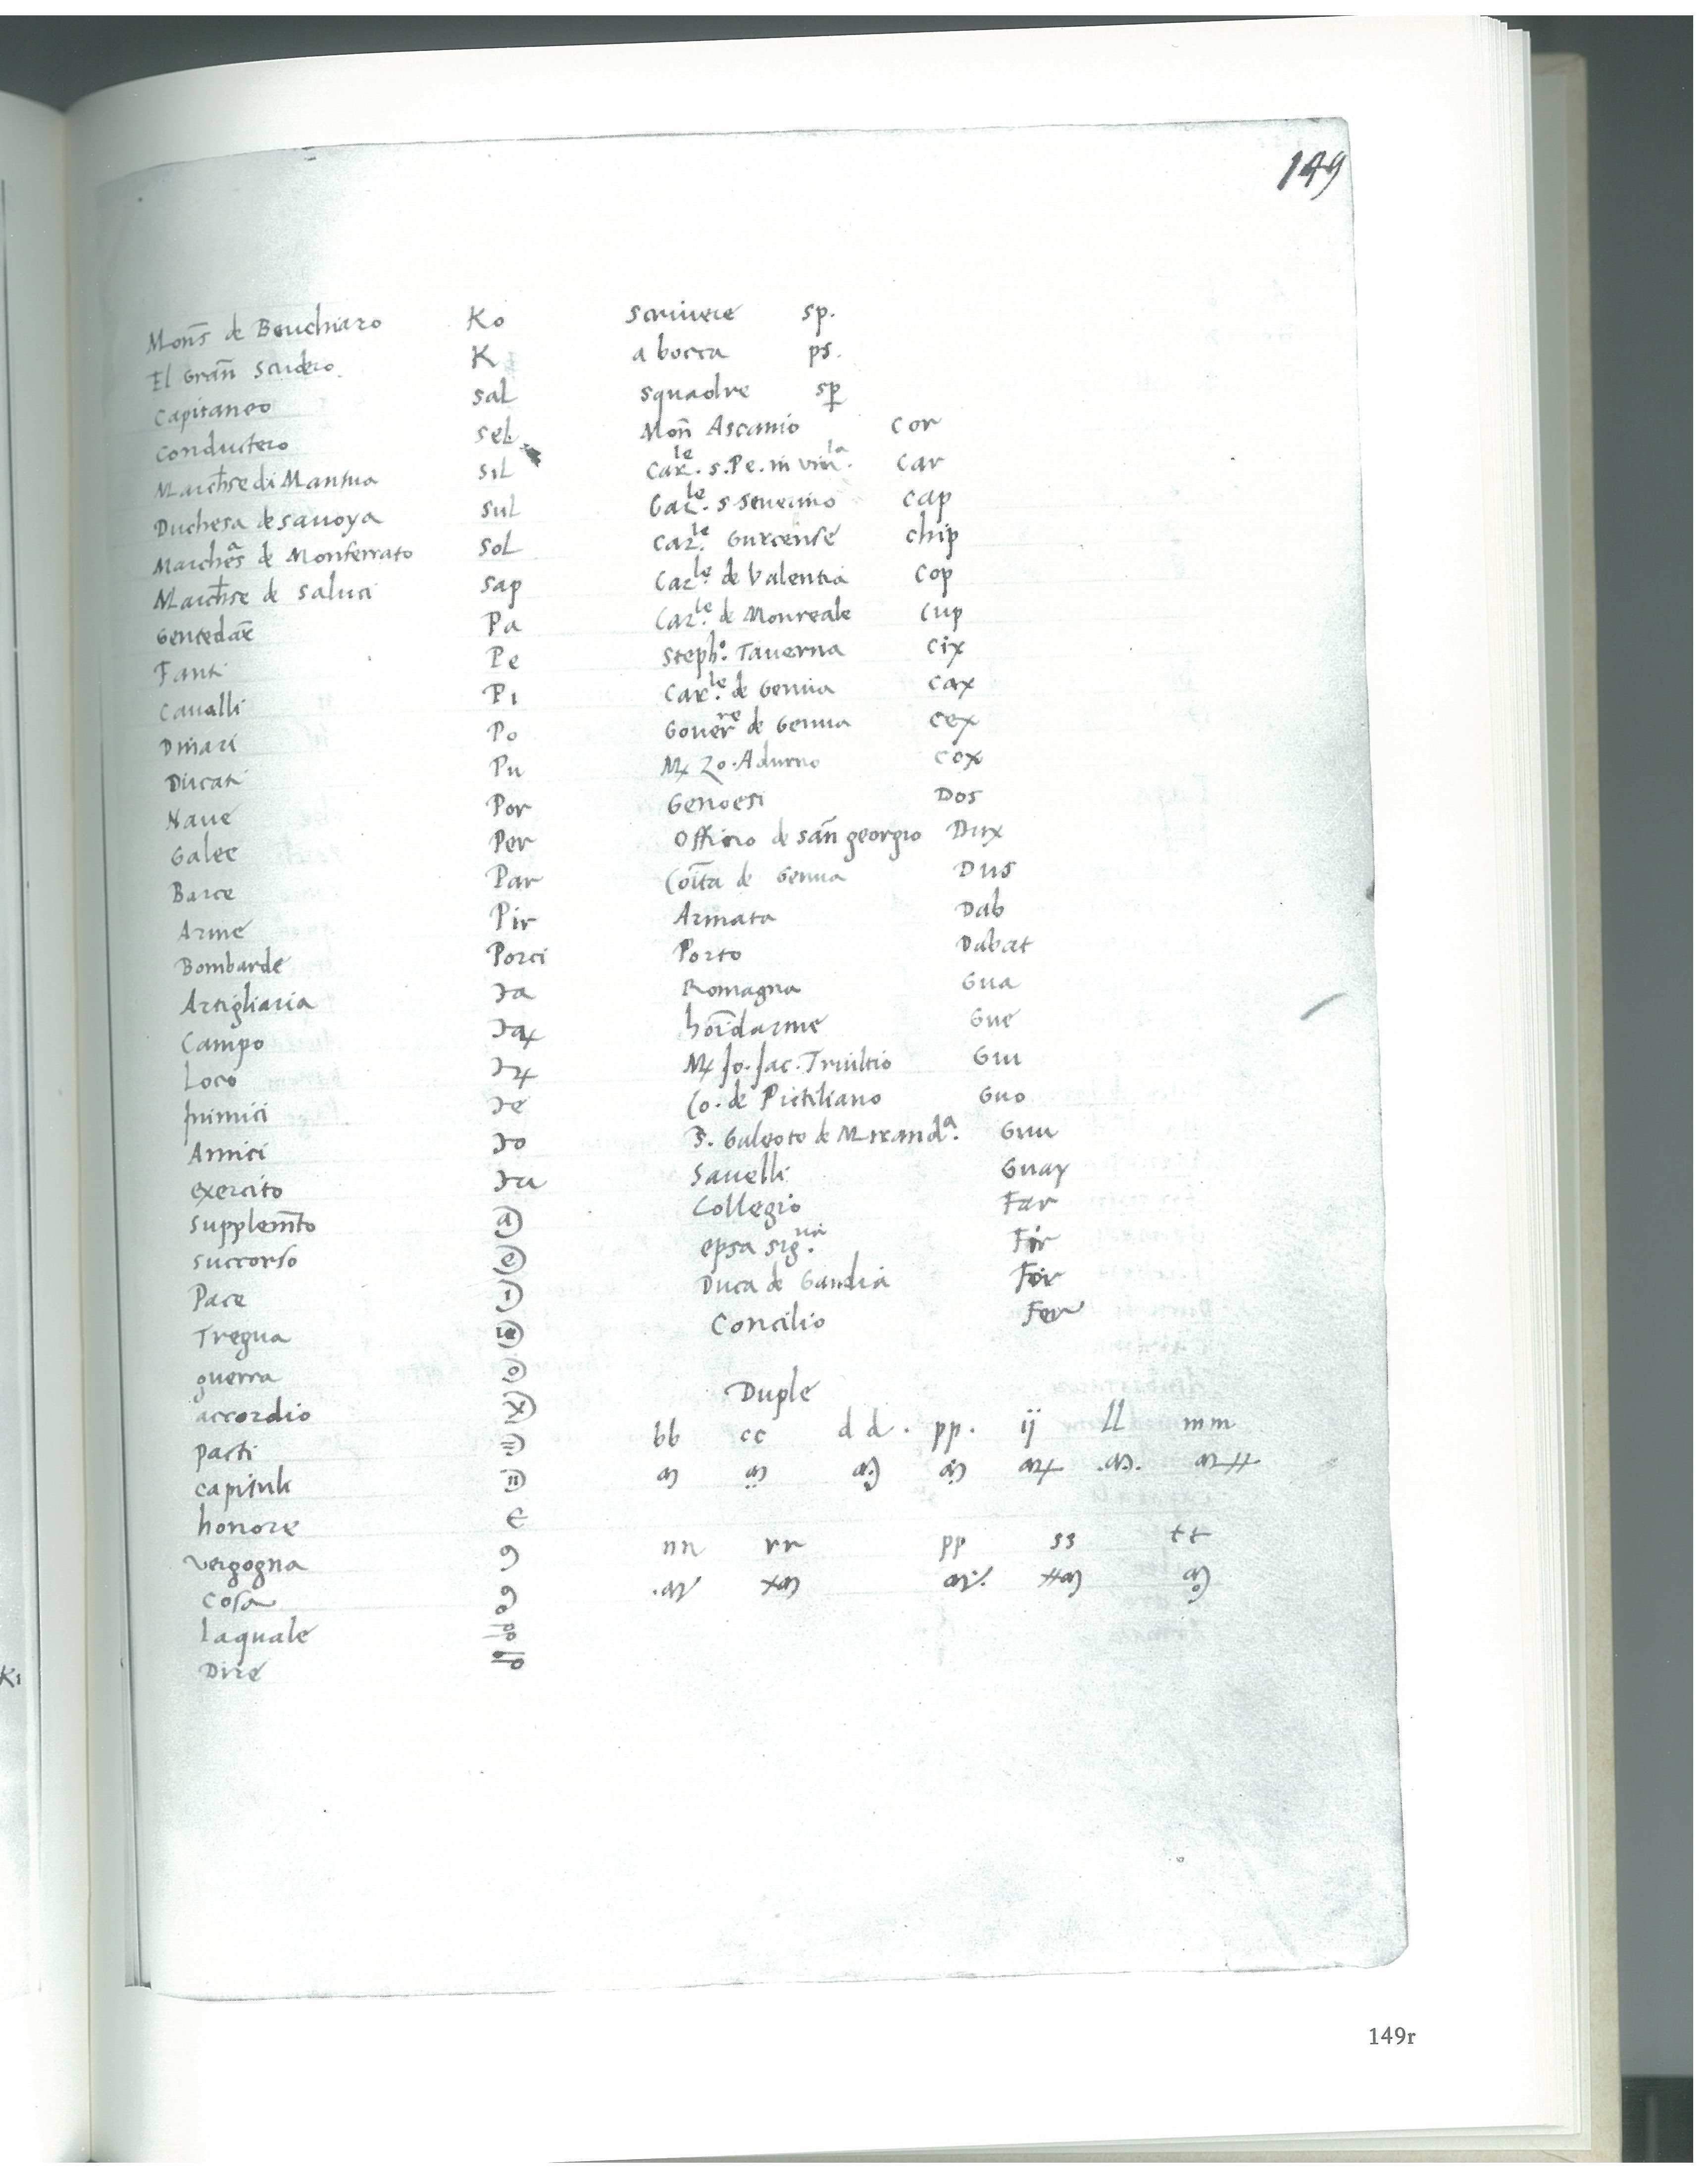 149
Mons̄ de Beuchiaro Ko
El Grañ Scudero K
Capitaneo sal
Conductero sel
Marchse di Mantua sil
Duchesa de savoya sul
Marchesa de Monferrato sol
Marchse de saluci sap
Gentedar̄ Pa
Fanti Pe
Cavalli Pi
Dinari Po
Ducati Pu
Naue Por
Galee Per
Barce Par
Arme Pir
Bombarde Porci
Artigliaria
Campo
Loco
Inimici
Amici
exercito
supplem̄to
succorso
Pace
Tregua
guerra
accordio
parti
capituli
honore
vergogna
Cosa
laquale
Dire
scriuere sp.
a bocca ps.
squadre sp
Mon̄ Ascanio cor
Car.le s. Pe. in vin.la car
Car.le s seuerino cap
Car.le Gurcense chip
Car.le de Valentia cop
Car.le de Monreale cup
Steph.o Tauerna cix
Car.le de Genua cax
Gouerre de Genua cex
Mx Zo. Adurno cox
Genoesi Dos
Officio de sañ georgio Dux
Coīta de Genua Dus
Armata Dab
Porto Dabat
Romagna Gua
hoīdarme Gue
Mx Jo. Jac. Triultio Gui
Co. de Pitiliano Guo
S. Galeoto de Mirand.a Guu
Sauelli Guay
Collegio Far
epsa sig.ria Fir
Duca de Gandia For
Concilio Fer
Duple
bb cc dd. pp. ij ll mm
nn rr pp ss tt
Ki
149r